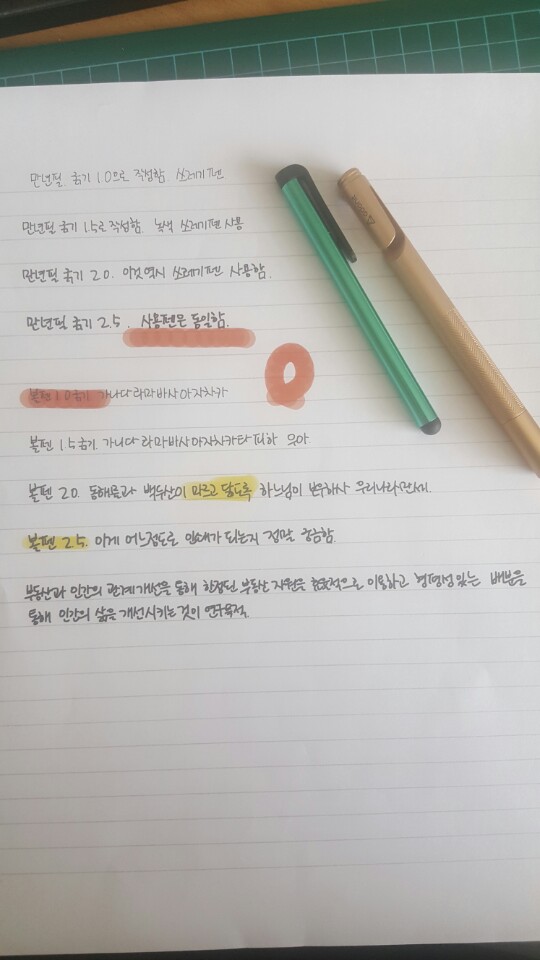 만년필 굵기 1.0으로 작성함. 쓰레기펜
만년필 굵기 1.5로 작성함. 녹색 쓰레기펜 사용
만년필 굵기 2.0. 이것 역시 쓰레기펜 사용함.
만년필 굵기 2.5. 사용펜은 동일함.
볼펜 1.0굵기. 가나다라마바사아자차카
볼펜 1.5굵기. 가나다라마바사아자차카타파하
볼펜 2.0. 동해물과 백두산이 마르고 닳도록 하느님이 보우하사 우리나라만세.
볼펜 2.5. 이게 어느정도로 인쇄가 되는지 정말 궁금함.
부동산과 인간의 관계개선을 통해 한정된 부동산 자원을 이용하고 형평성 있는 배분을
통해 인간의 삶을 개선시키는것이 연구목적.